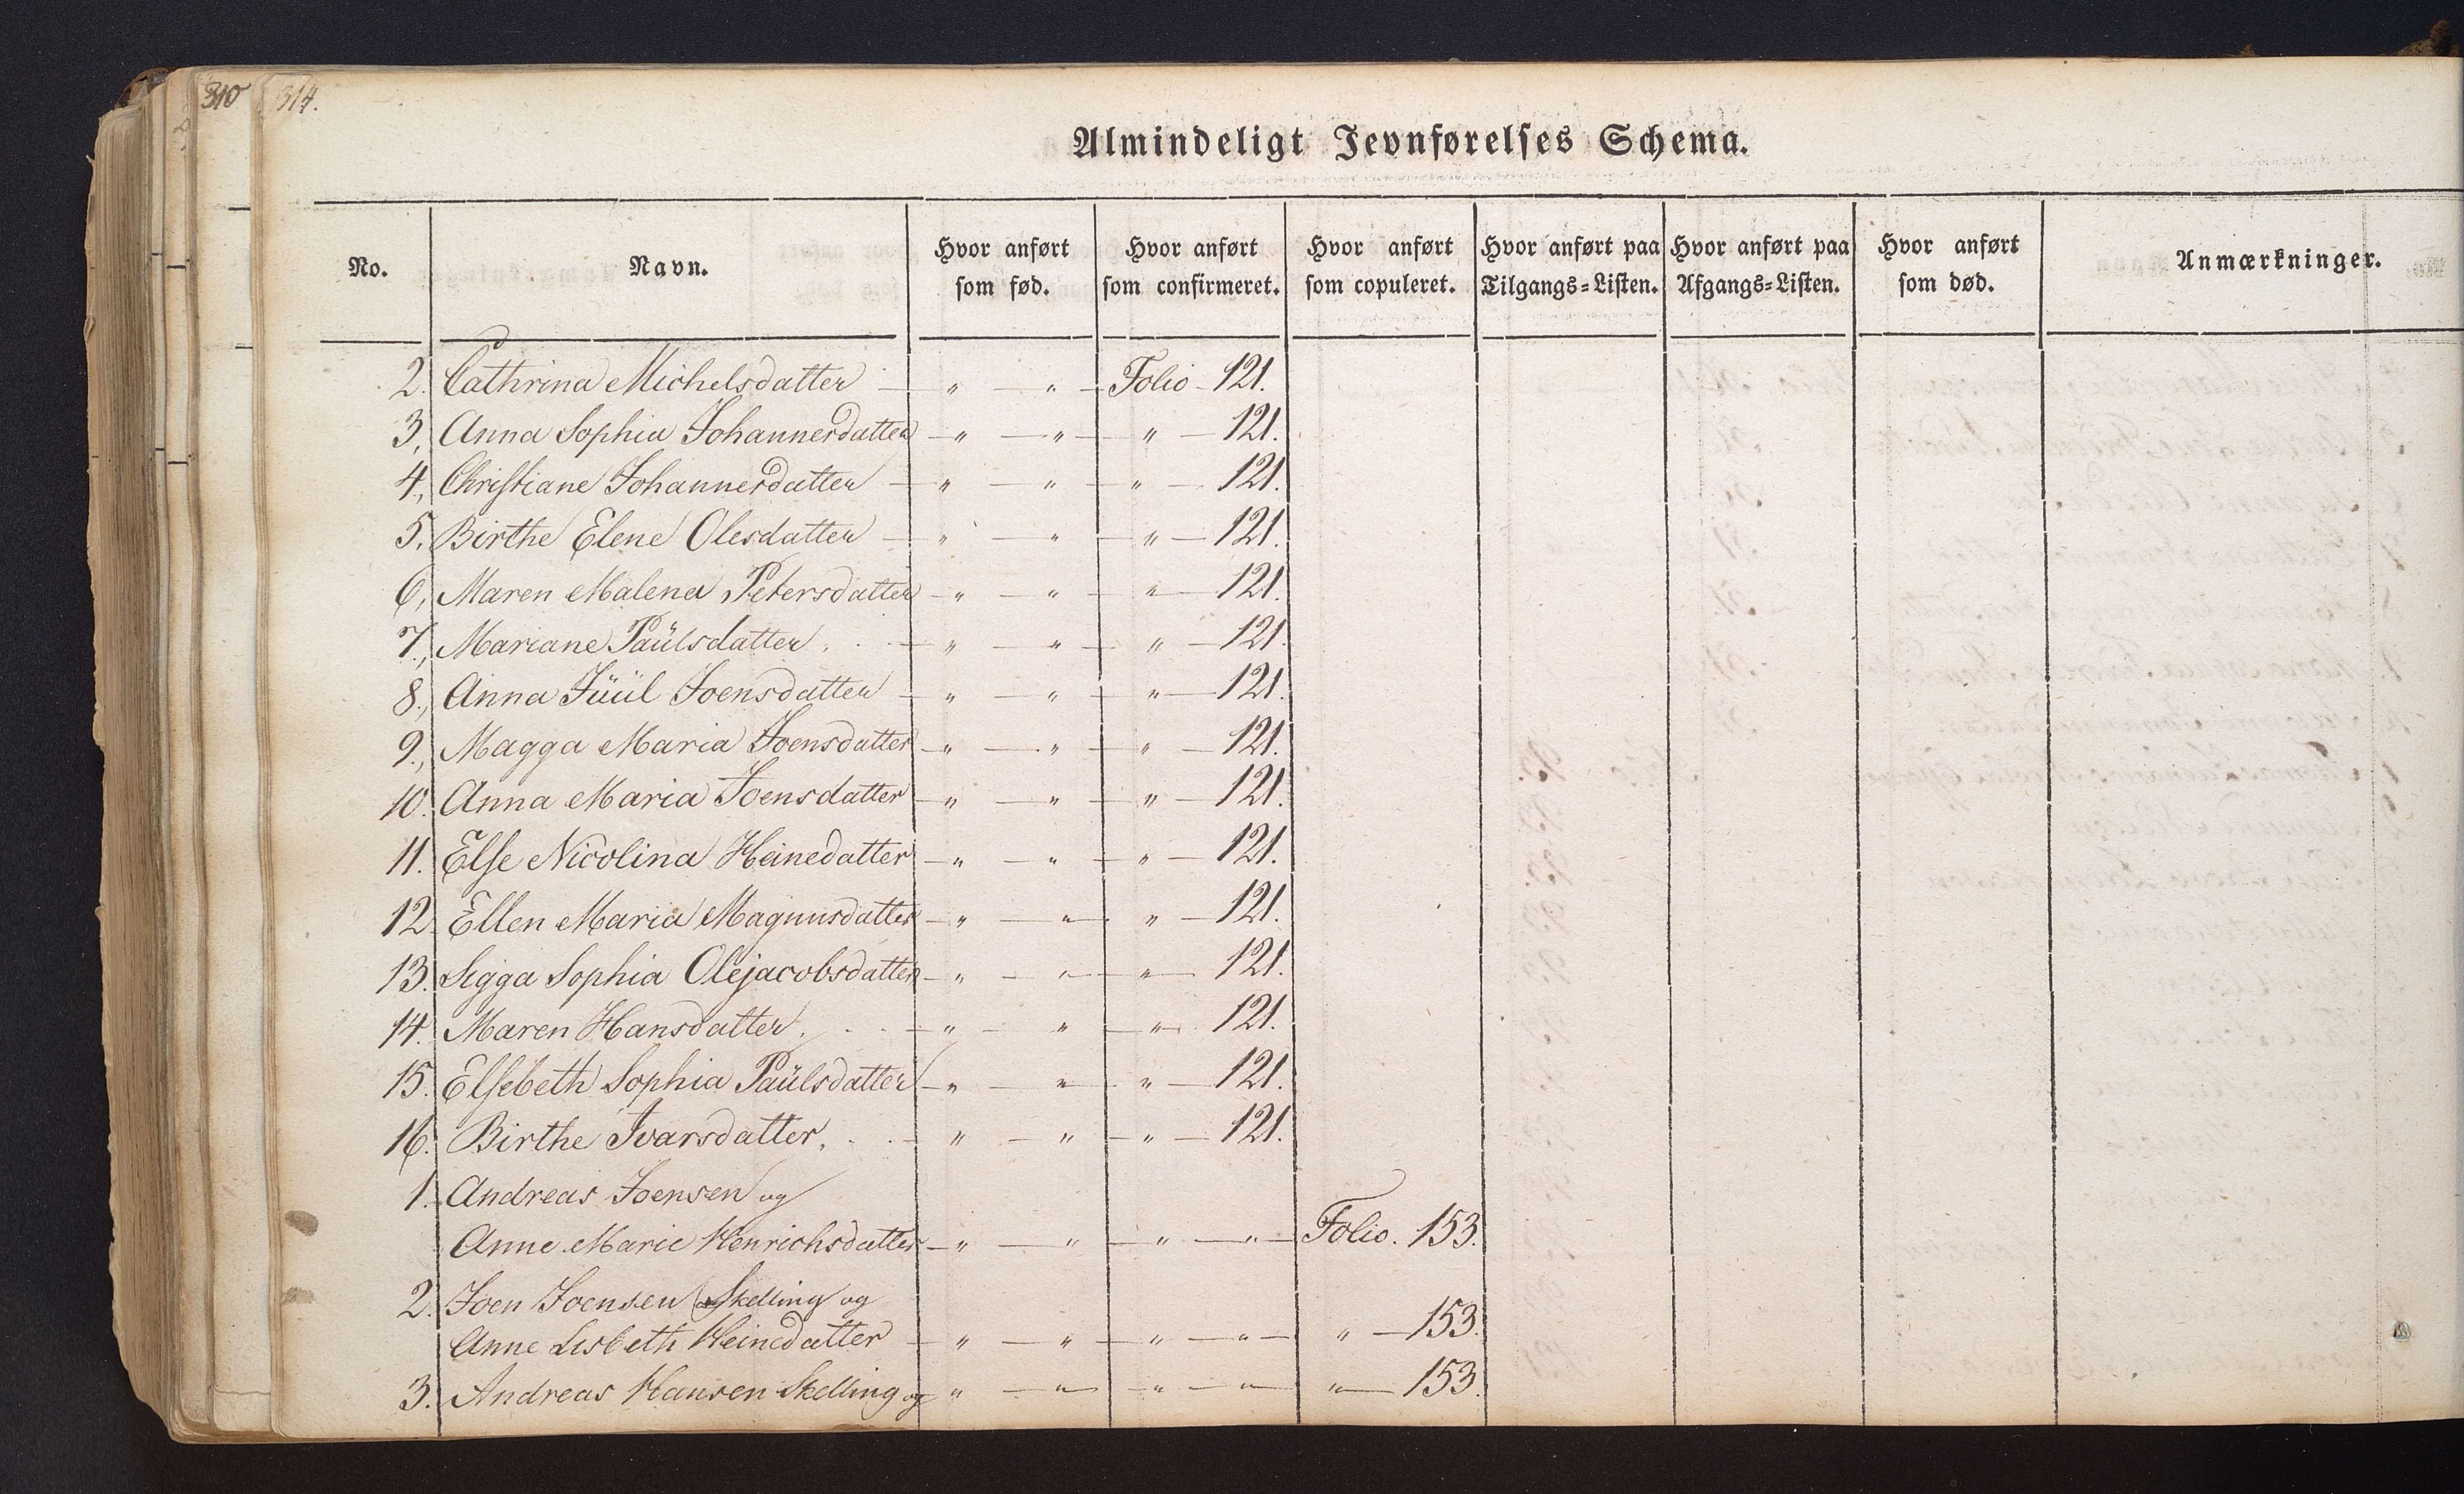 310
314.
Almindeligt Jevnførelses Schema.
No. Navn. Hvor anført som fød. Hvor anført som confirmeret. Hvor anført som copuleret. Hvor anført paa Tilgangs=Listen. Hvor anført paa Afgangs=Listen. Hvor anført som død. Anmærkninger.
2. Cathrina Michelsdatter — " — " — Folio - 121.
3, Anna Sophia Johannesdatter — " — " — " — 121.
4, Christiane Johannesdatter — " — " — " — 121.
5. Birthe Elene Olesdatter — " — " — " — 121.
6, Maren Malena Petersdatter — " — " — " — 121.
7., Mariane Paülsdatter. — " — " — " — 121.
8., Anna Jüül Joensdatter — " — " — " — 121.
9., Magga Maria Joensdatter — " — " — " — 121.
10. Anna Maria Joensdatter — " — " — " — 121.
11. Else Nicolina Heinedatter — " — " — " — 121.
12. Ellen Maria Magnusdatter — " — " — " — 121.
13. Sigga Sophia Olejacobsdatter — " — " — " — 121.
14. Maren Hansdatter. — " — " — " — 121.
15. Elsebeth Sophia Paülsdatter — " — " — " — 121.
16. Birthe Ivarsdatter. — " — " — " — 121.
1. Andreas Joensen og
Anne Marie Henrichsdatter — " — " — " — " — Folio. 153.
2. Joen Joensen Skelling og
Anne Lisbeth Heinedatter — " — " — " — " — " — 153.
3. Andreas Hansen Skelling og " — " — " — " — " — 153.